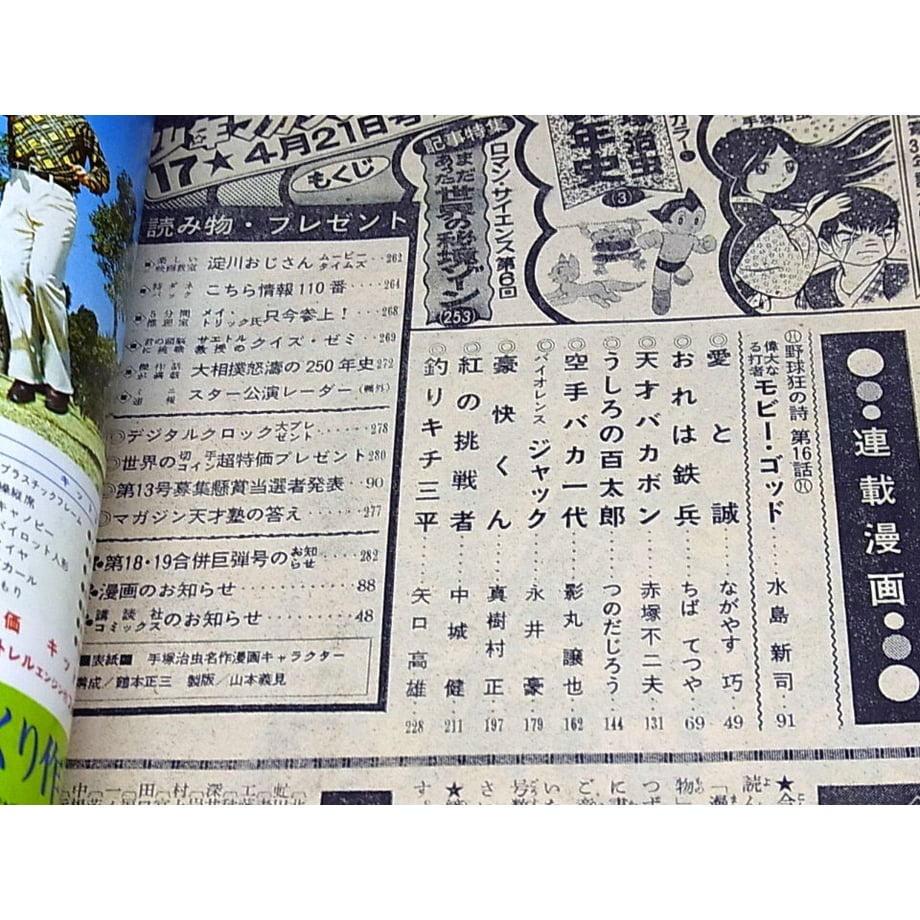 17★4月21日号
もくじ
手塚治虫
年史
(3)
記事特集
ロマン・サイエンス第6回
まだあった世界の秘境ゾーン
(253)
●連載漫画●
野球狂の詩 第16話
偉大なる打者 モビー・ゴッド……水島新司 91
◎愛と誠……ながやす巧 49
◎おれは鉄兵……ちばてつや 69
◎天才バカボン……赤塚不二夫 131
◎うしろの百太郎……つのだじろう 144
◎空手バカ一代……影丸譲也 162
◎バイオレンスジャック……永井豪 179
◎豪快くん……真樹村正 197
◎紅の挑戦者……中城健 211
◎釣りキチ三平……矢口高雄 228
読み物・プレゼント
■楽しい映画教室 淀川おじさんムービータイムズ‥262
■特ダネパック こちら情報110番‥‥264
■5分間推理室 メイ・トリック氏只今参上!‥‥268
■君の頭脳に挑戦 サエトル教授のクイズ・ゼミ‥269
■傑作話が満載 大相撲怒濤の250年史272
■速報 スター公演レーダー(欄外)
◎デジタルクロック大プレゼント‥‥278
◎世界の切手コイン超特価プレゼント280
◎第13号募集懸賞当選者発表‥‥90
◎マガジン天才塾の答え‥‥‥277
第18・19合併巨弾号のお知らせ‥‥‥282
漫画のお知らせ‥‥‥‥88
講談社コミックスのお知らせ‥‥‥48
■表紙■ 手塚治虫名作漫画キャラクター
構成/鶴本正三 製版/山本義見
プラスチックフレーム
操縦席
キャノピー
パイロット人形